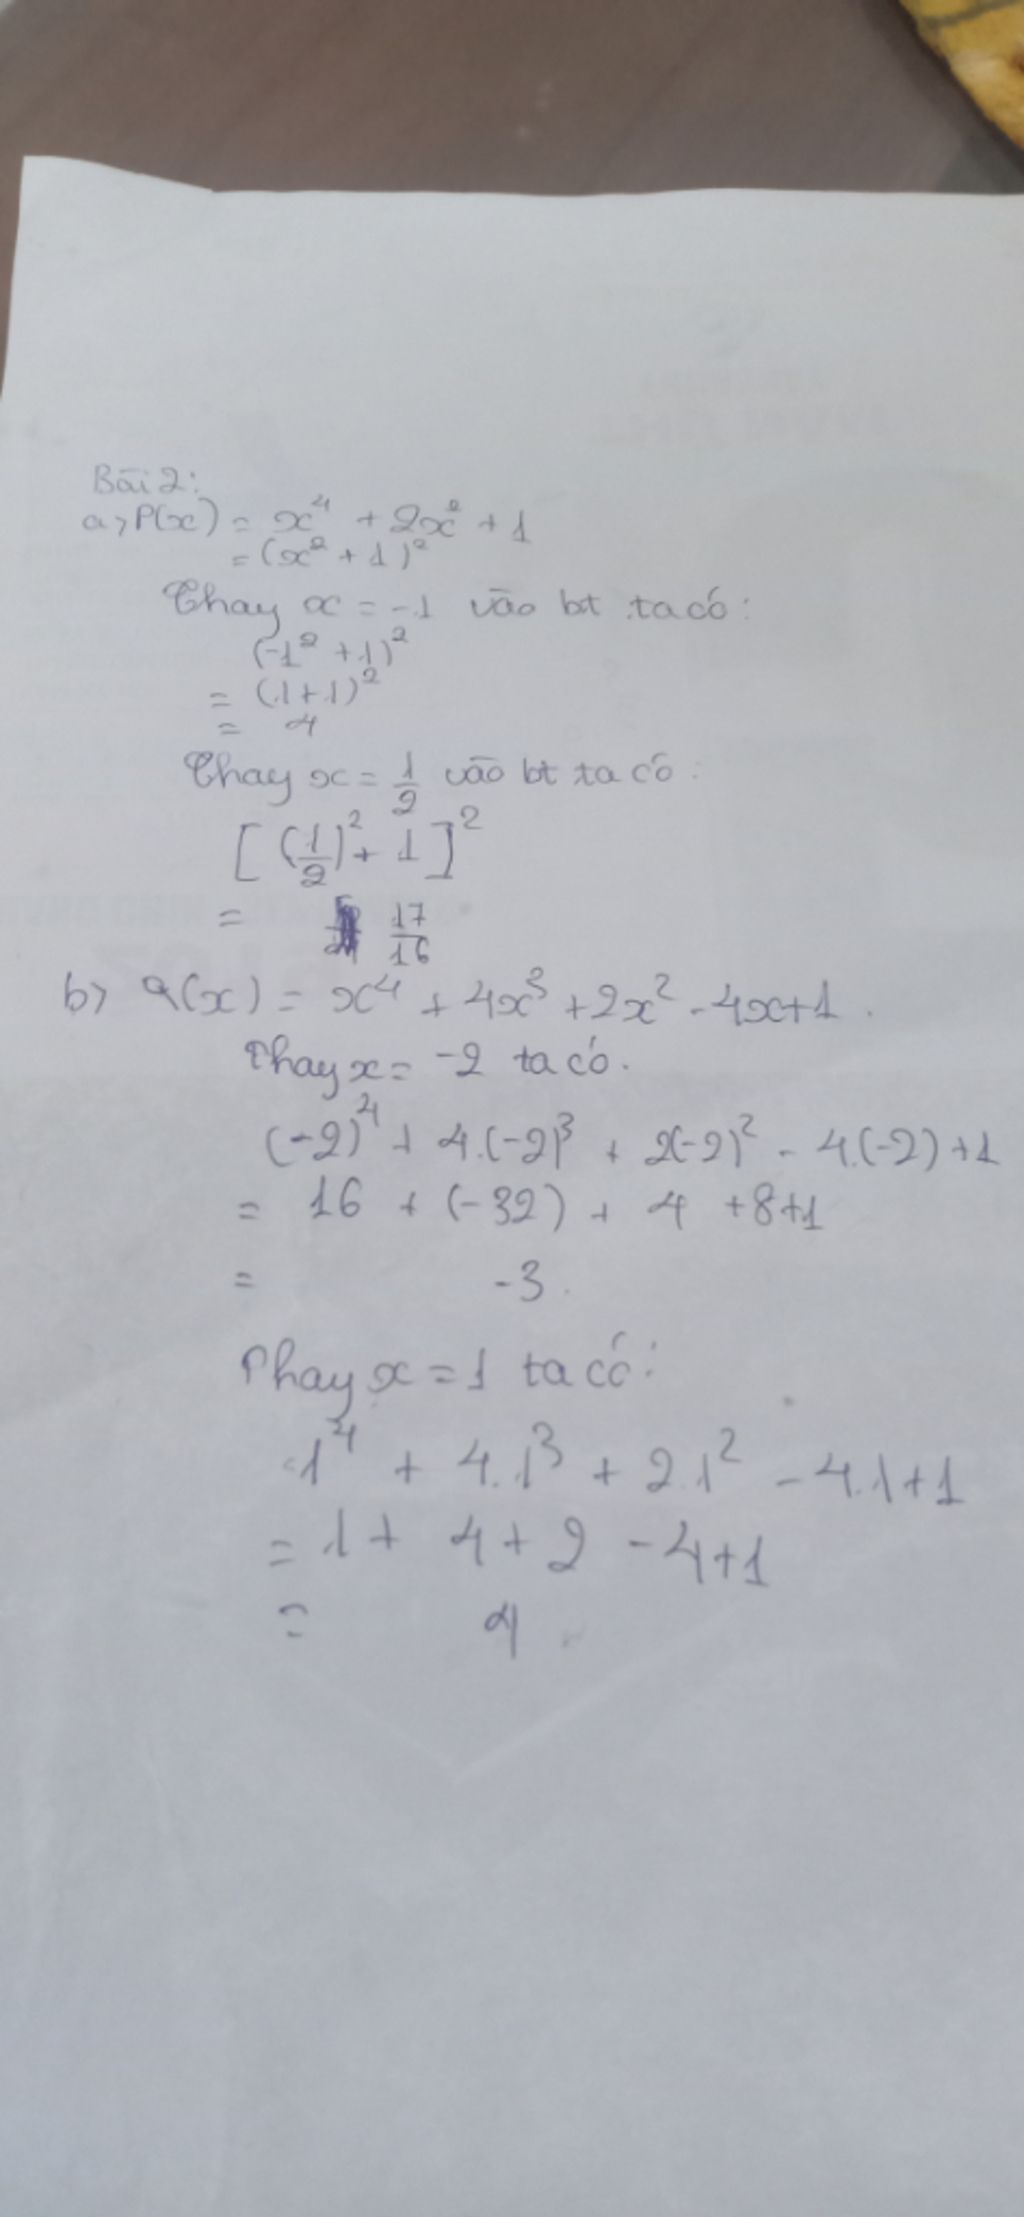 Bài 2:
a, P(x) = x⁴ + 2x² + 1
= (x² + 1)²
Thay x = -1 vào bt ta có:
(-1² + 1)²
= (1+1)²
= 4
Thay x = 1/2 vào bt ta có:
[(1/2)² + 1]²
= 17/16
b, Q(x) = x⁴ + 4x³ + 2x² - 4x+1.
Thay x = -2 ta có.
(-2)⁴ + 4.(-2)³ + 2(-2)² - 4.(-2)+1
= 16 + (-32) + 4 +8+1
= -3.
Thay x = 1 ta có:
1⁴ + 4.1³ + 2.1² - 4.1+1
= 1+ 4+2 -4+1
= 4